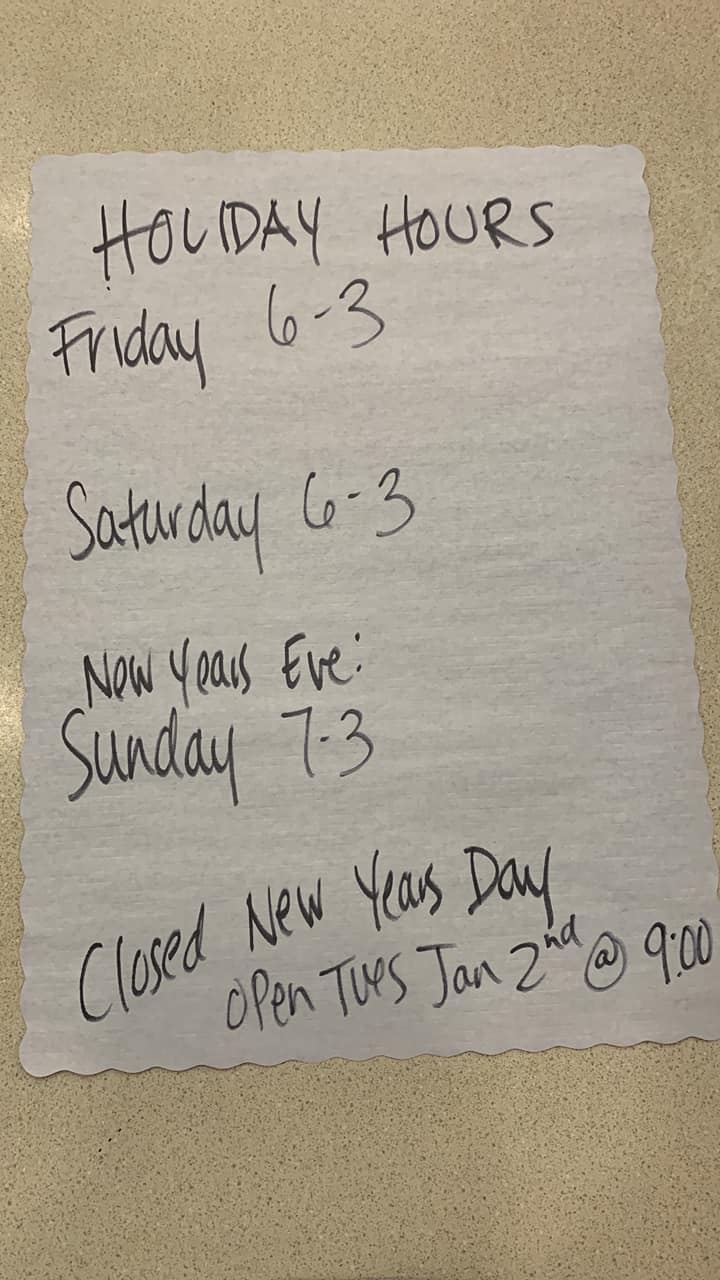 HOLIDAY HOURS
Friday 6-3
Saturday 6-3
New Years Eve:
Sunday 7-3
Closed New Years Day
open Tues Jan 2nd @ 9:00